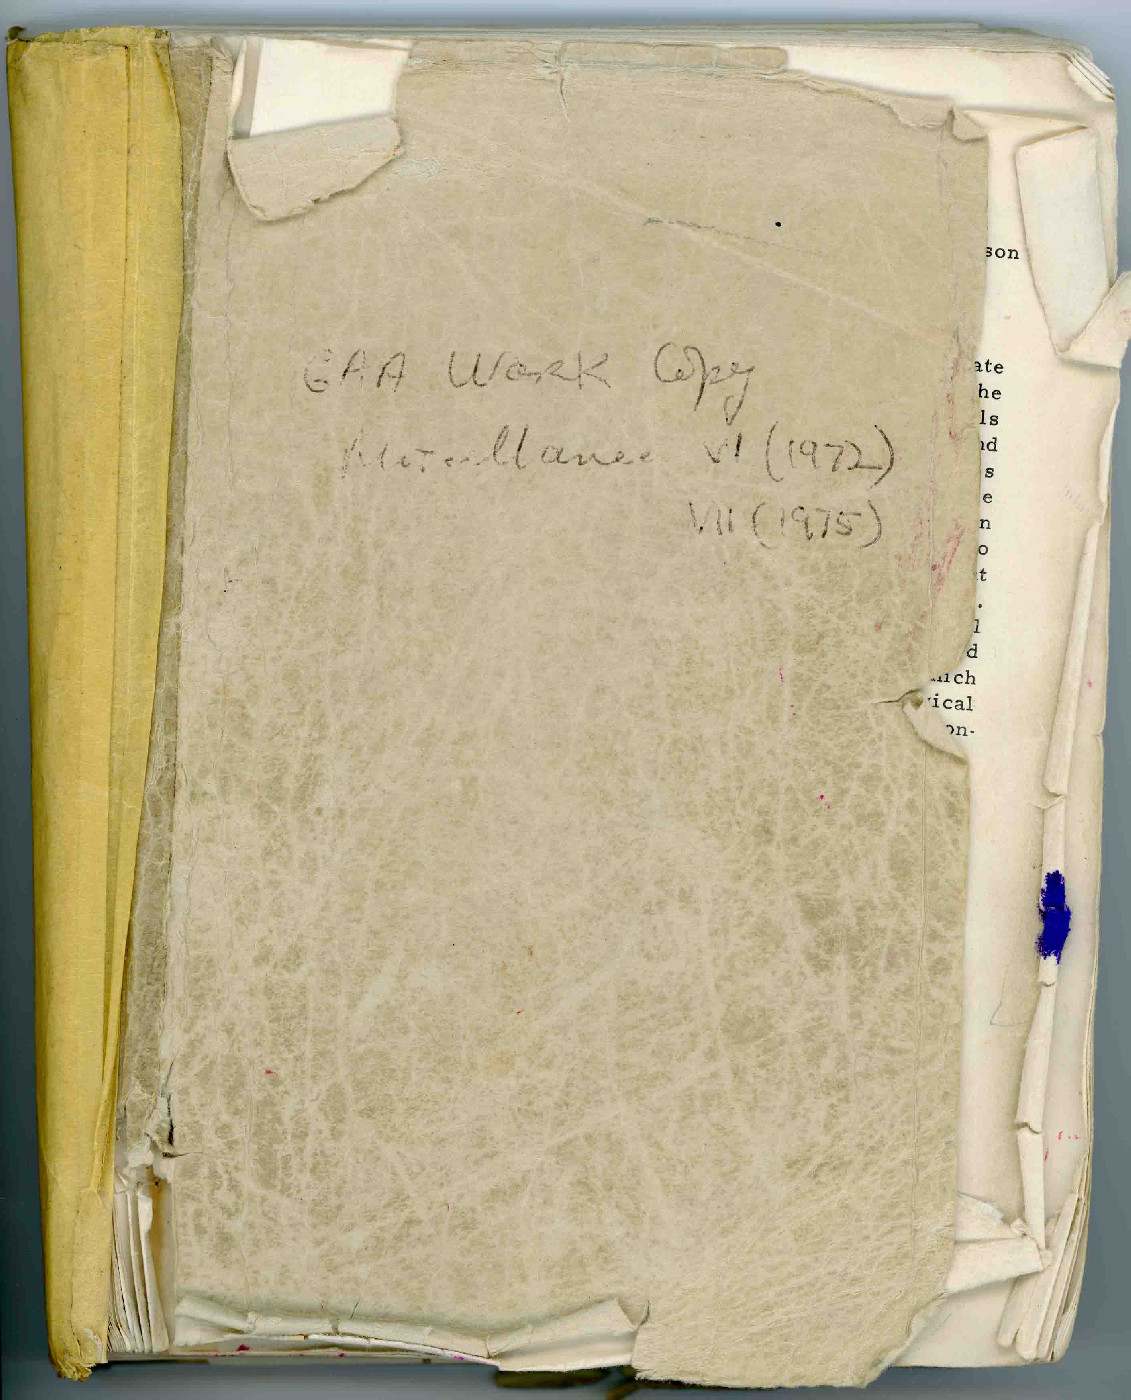 GAA Work Copy
Miscellanea VI (1972)
VII (1975)
son
ate
he
ls
nd
s
e
n
o
t
.
l
d
hich
ical
on-